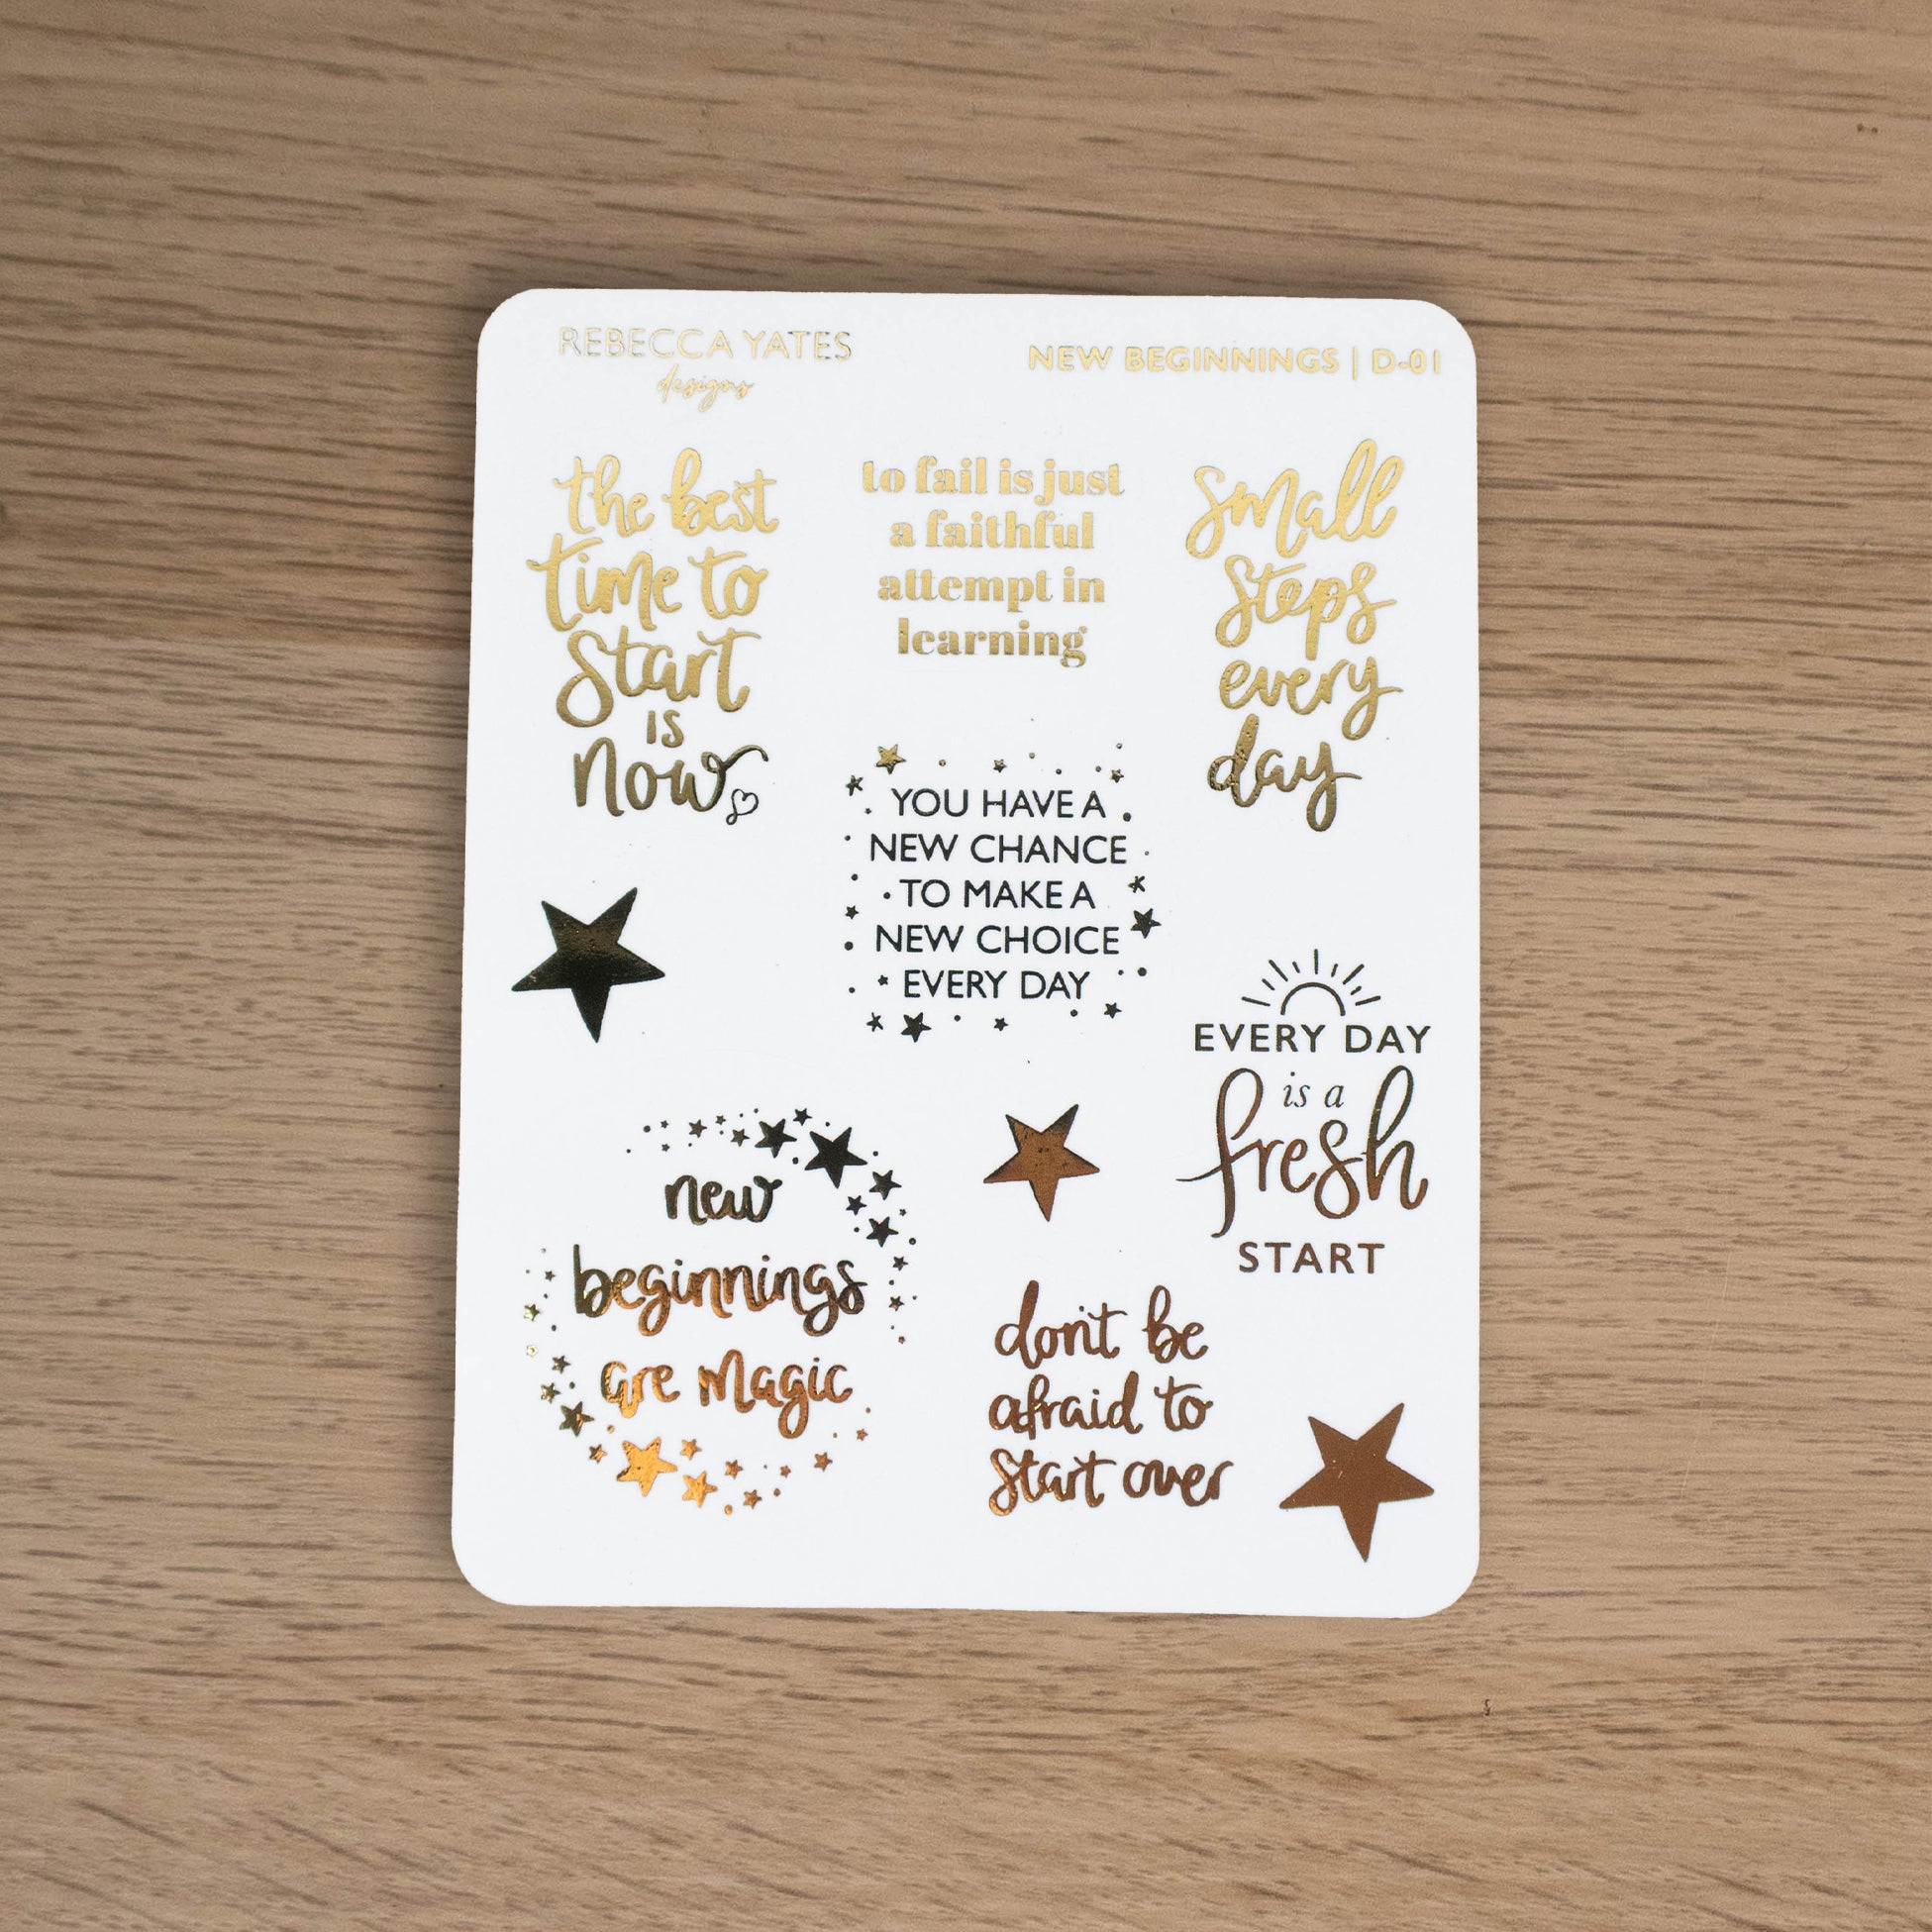 REBECCA YATES
designs
NEW BEGINNINGS | D-01
the best
time to
start
is
now
to fail is just
a faithful
attempt in
learning
small
steps
every
day
YOU HAVE A
NEW CHANCE
TO MAKE A
NEW CHOICE
EVERY DAY
EVERY DAY
is a
fresh
START
new
beginnings
are magic
don't be
afraid to
start over